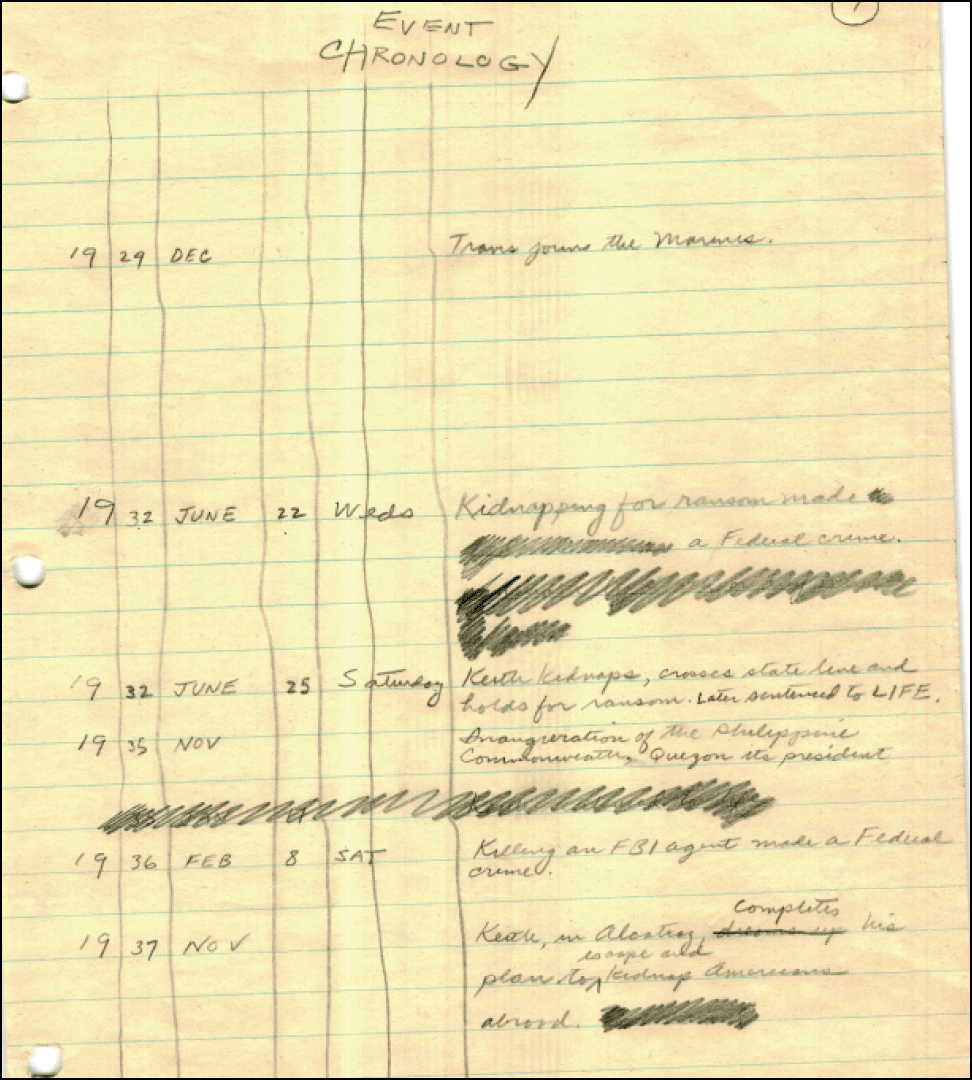 1
EVENT
CHRONOLOGY
19 29 DEC Travis joins the Marines.
19 32 JUNE 22 Weds Kidnapping for ransom made
a Federal crime.
19 32 JUNE 25 Saturday Keith kidnaps, crosses state line and
holds for ransom. Later sentenced to LIFE.
19 35 NOV Inauguration of the Philippine
Commonwealth, Quezon its president
19 36 FEB 8 SAT Killing an FBI agent made a Federal
crime.
completes
19 37 NOV Keith, in Alcatraz, dreams up his
escape and
plan to kidnap Americans
abroad.